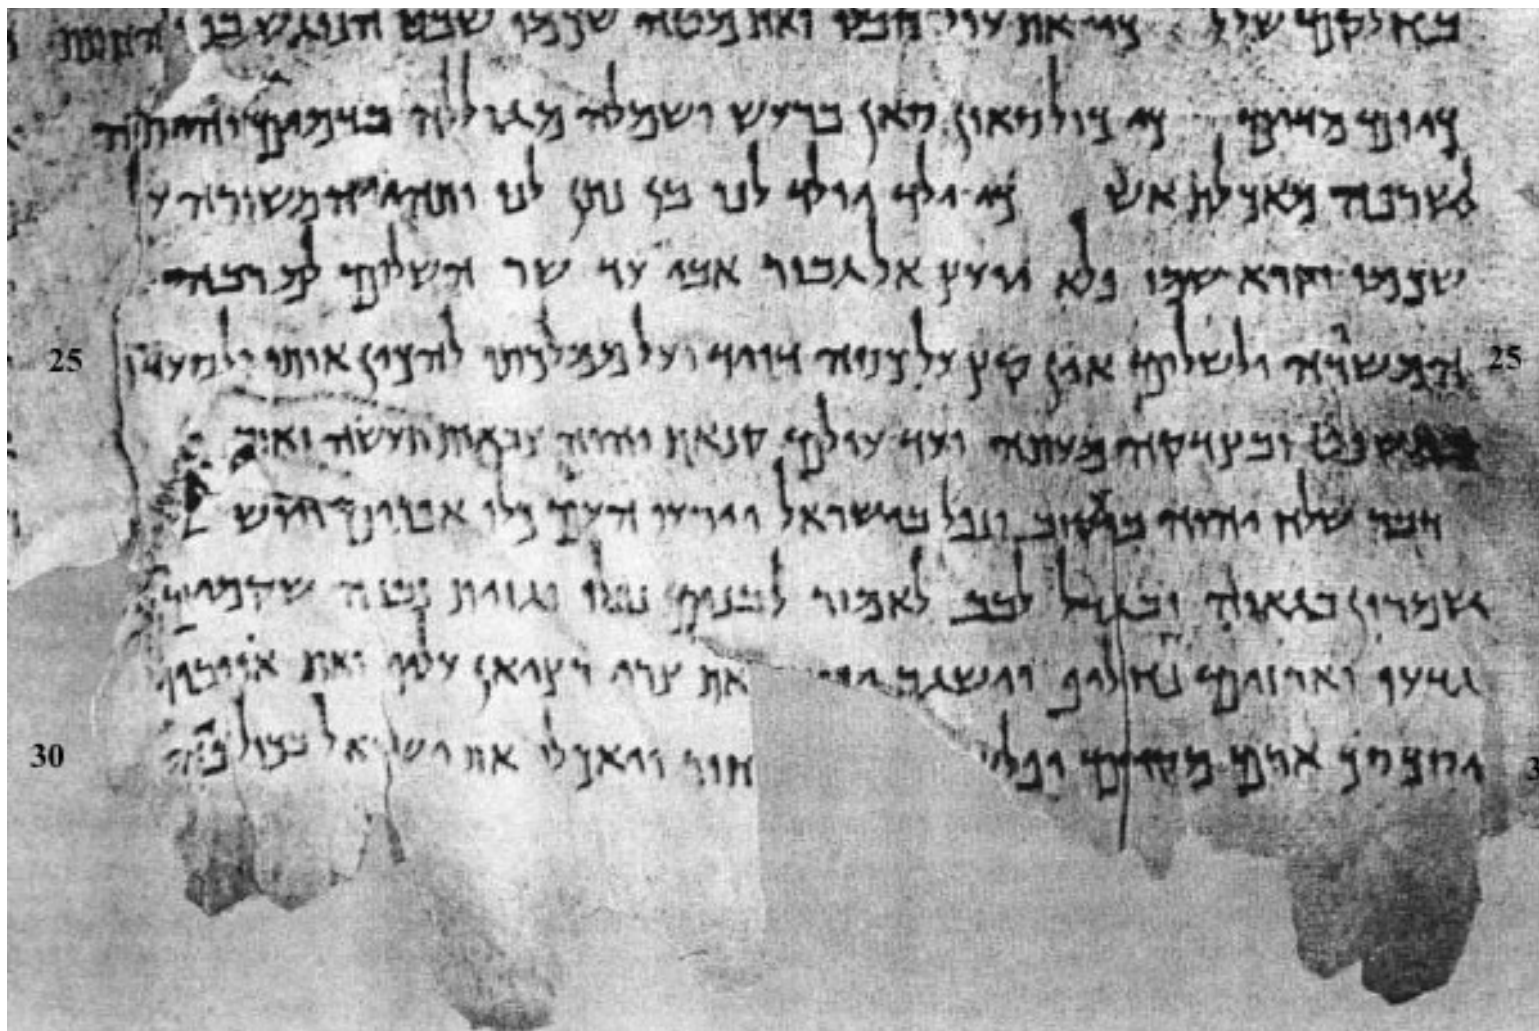 בחלקם שלל כי את עול סבלו ואת מטה שכמו שבט הנוגש בו החתת
כיום מדים כי כול סאון סאן ברעש ושמלה מגוללה בדמים והייתה
לשרפה מאכלת אש כי ילד יולד לנו בן נתן לנו ותהי המשורה ע
שכמו וקרא שמו פלא יועץ אל גבור אבי עד שר השלום למרבה
25 המשרה ולשלום אין קץ על כסה דויד ועל ממלכתו להכין אותו ולסעדו 25
במשפט ובצדקה מעתה ועד עולם קנאת יהוה צבאות תעשה זואת
דבר שלח יהוה ביעקוב ונפל בישראל וידעו העם כולו אפרים ויושב
שמרון בגאוה ובגודל לבב לאמור לבנים נפלו וגזית נבנה שקמים
גדעו וארזים נחליף וישגב את צרי רציאן עליו ואת אויבו
30 יסכסך ארם מקדם ופלש חור ויאכלו את ישראל בכול פה